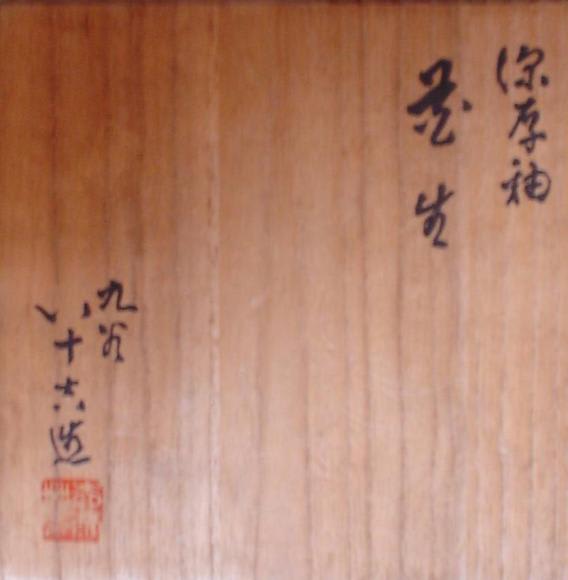 深厚釉
花生
九谷
八十吉造